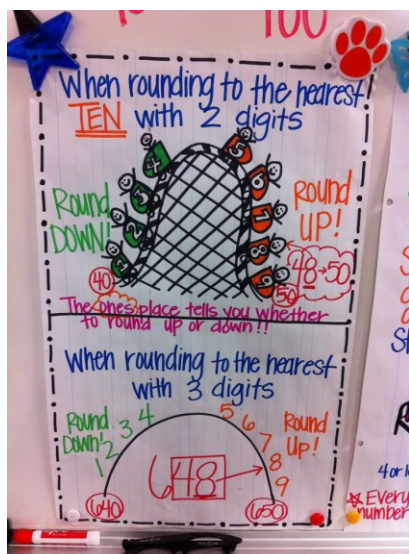 100
When rounding to the nearest
TEN with 2 digits
4
5
3
6
2
7
1
8
9
Round
DOWN!
Round
UP!
48→50
40
50
The ones place tells you whether
to round up or down!!
When rounding to the nearest
with 3 digits
Round
Down!
1
2
3
4
5
6
7
8
9
Round
Up!
648
640
650
4 or l
Every
number